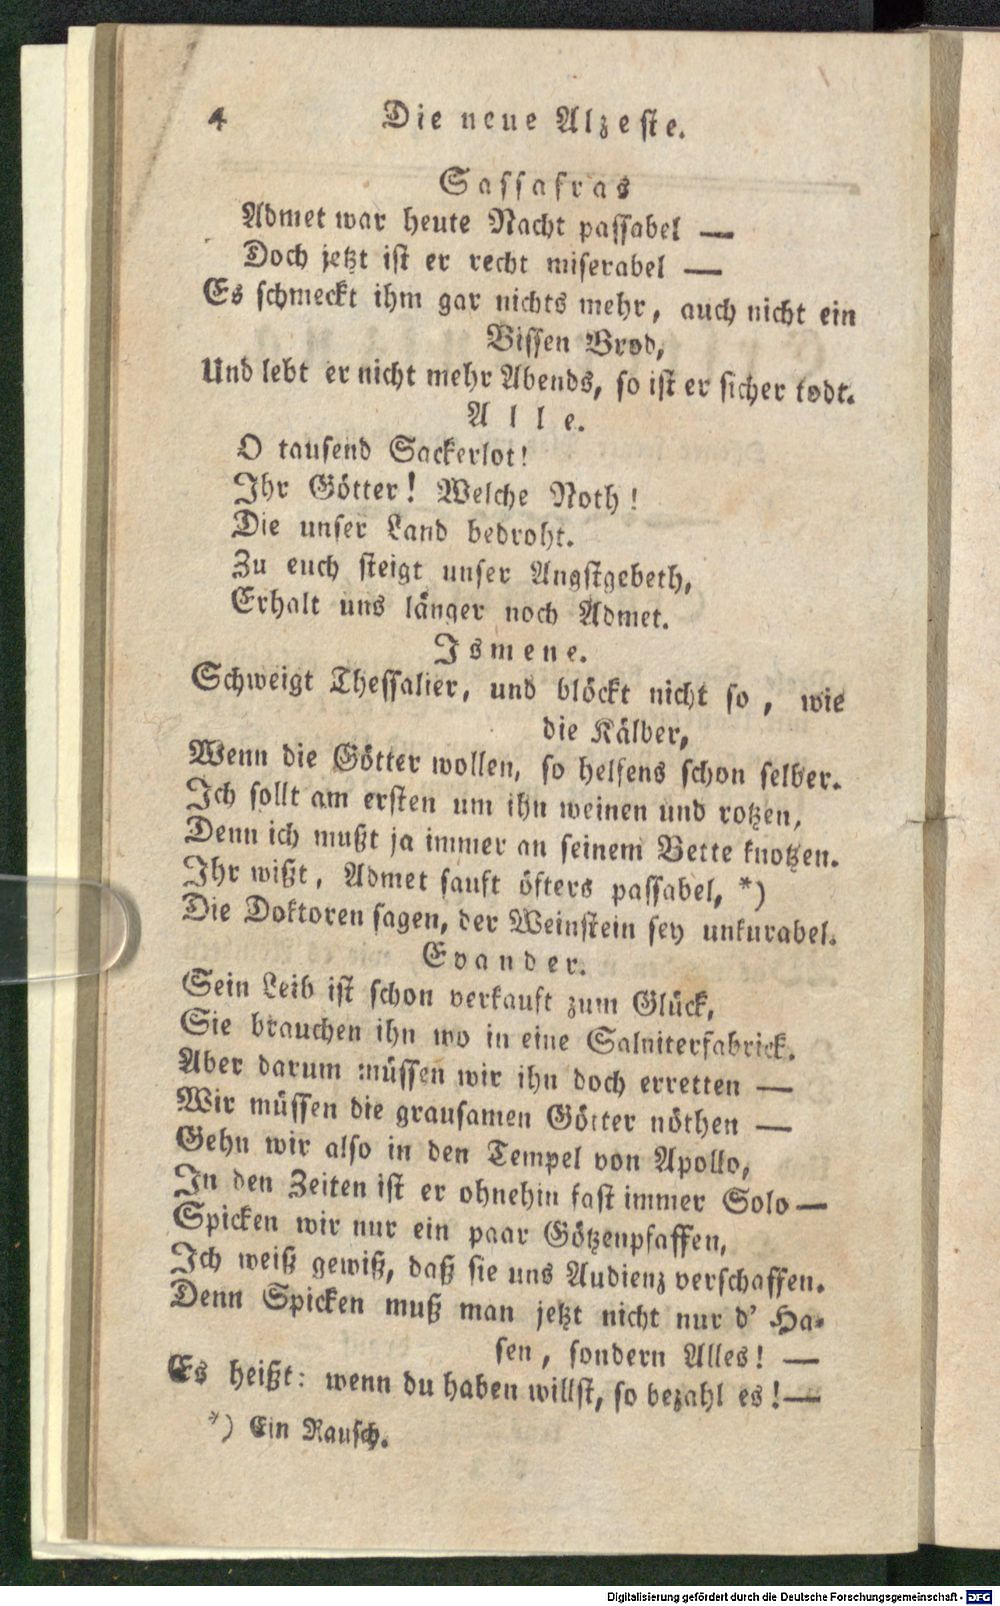 4 Die neue Alzeste.
Sassafras
Admet war heute Nacht passabel —
Doch jetzt ist er recht miserabel —
Es schmeckt ihm gar nichts mehr, auch nicht ein
Bissen Brod,
Und lebt er nicht mehr Abends, so ist er sicher todt.
Alle.
O tausend Sackerlot!
Ihr Götter! Welche Noth!
Die unser Land bedroht.
Zu euch steigt unser Angstgebeth,
Erhalt uns länger noch Admet.
Ismene.
Schweigt Thessalier, und blöckt nicht so, wie
die Kälber,
Wenn die Götter wollen, so helfens schon selber.
Ich sollt am ersten um ihn weinen und rotzen,
Denn ich mußt ja immer an seinem Bette knotzen.
Ihr wißt, Admet sauft öfters passabel, *)
Die Doktoren sagen, der Weinstein sey unkurabel.
Evander.
Sein Leib ist schon verkauft zum Glück,
Sie brauchen ihn wo in eine Salniterfabrick.
Aber darum müssen wir ihn doch erretten —
Wir müssen die grausamen Götter nöthen —
Gehn wir also in den Tempel von Apollo,
In den Zeiten ist er ohnehin fast immer Solo —
Spicken wir nur ein paar Götzenpfaffen,
Ich weiß gewiß, daß sie uns Audienz verschaffen.
Denn Spicken muß man jetzt nicht nur d' Ha-
sen, sondern Alles! —
Es heißt: wenn du haben willst, so bezahl es! —
*) Ein Rausch.
Digitalisierung gefördert durch die Deutsche Forschungsgemeinschaft - DFG